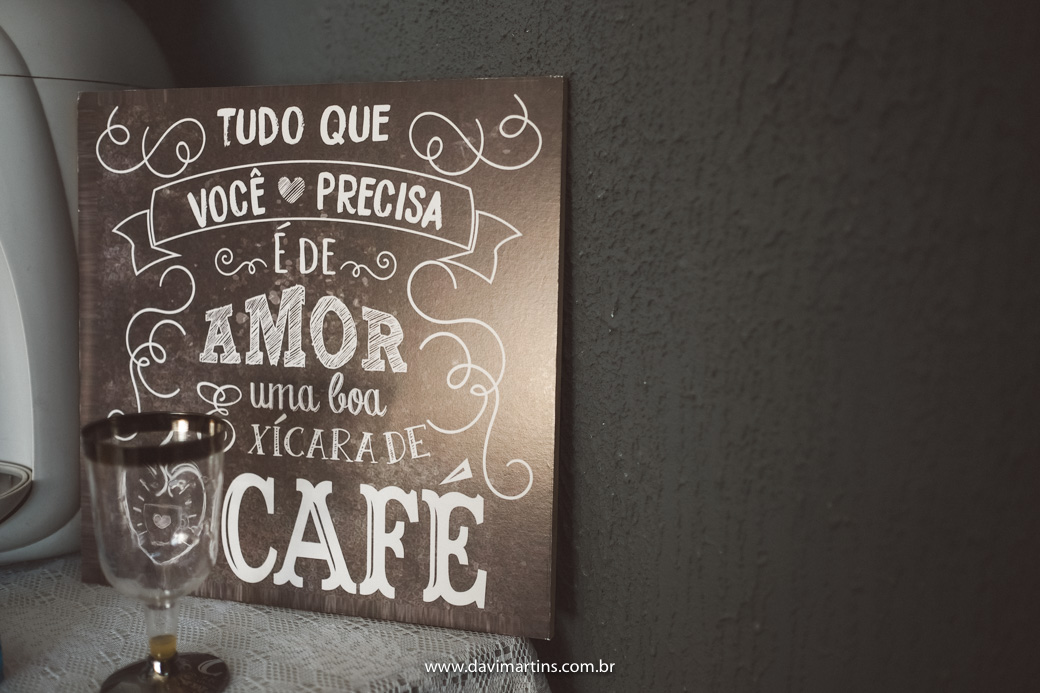 TUDO QUE
VOCÊ PRECISA
É DE
AMOR
& uma boa
XÍCARA DE
CAFÉ
www.davimartins.com.br